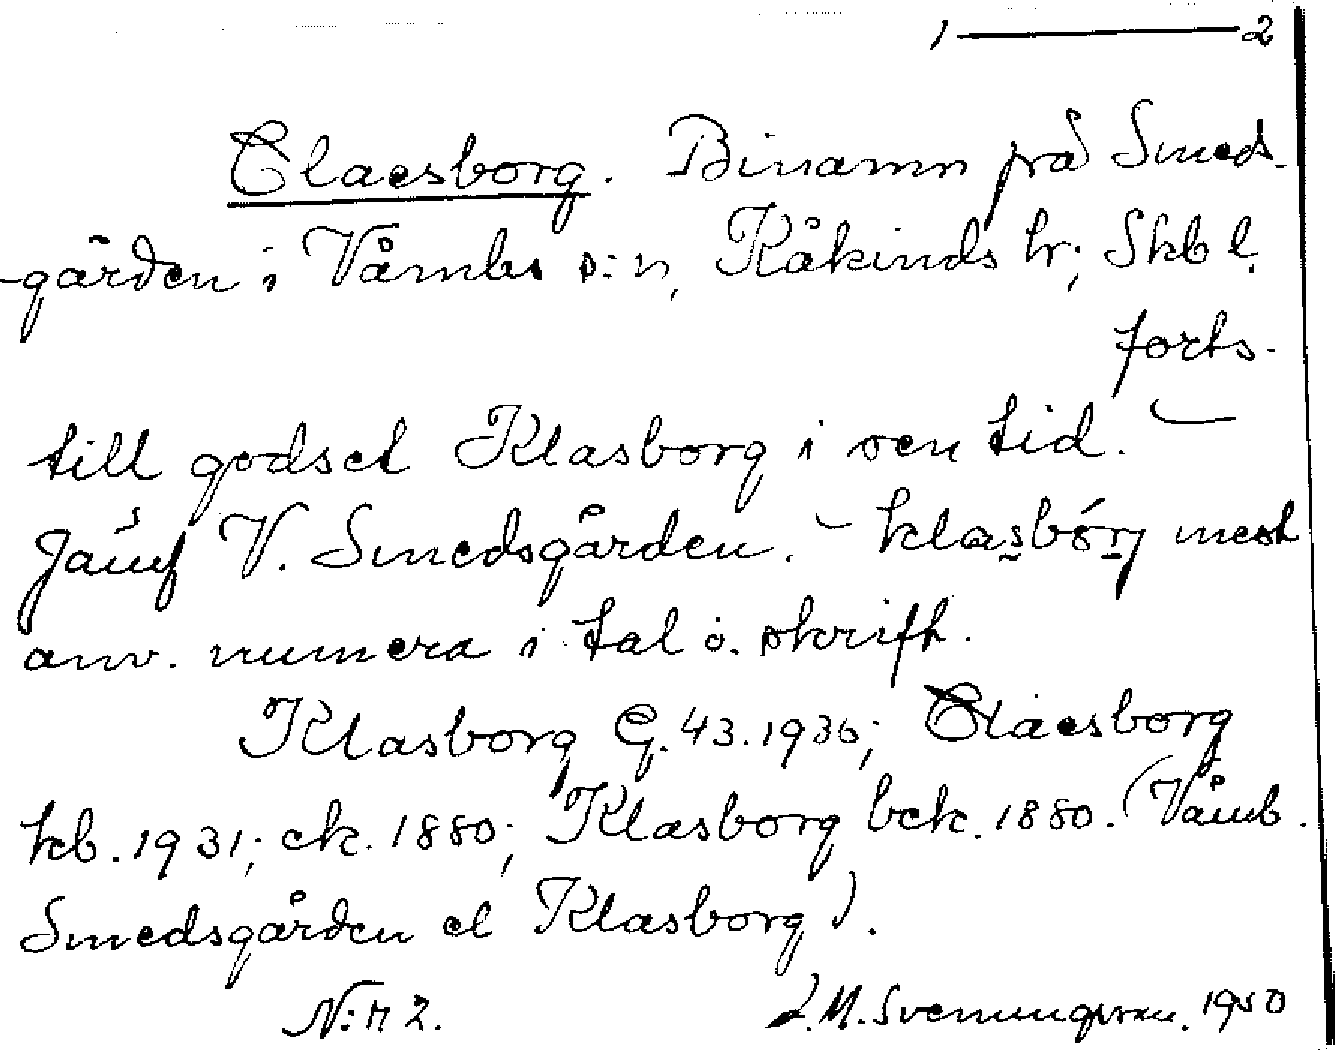 1 — 2
Claesborg. Binamn på Smeds-
-gården i Våmbs s:n, Kåkinds hr; Skbl.
forts.
till godset Klasborg i sen tid. —
Jämf V. Smedsgården. - klasbórj mest
anv. numera i tal o. skrift.
Klasborg G. 43. 1936; Claesborg
kb. 1931; ck. 1880; Klasborg bck. 1880. (Våmb.
Smedsgården el Klasborg).
N:r 2.
J.M. Svenungsson. 1950